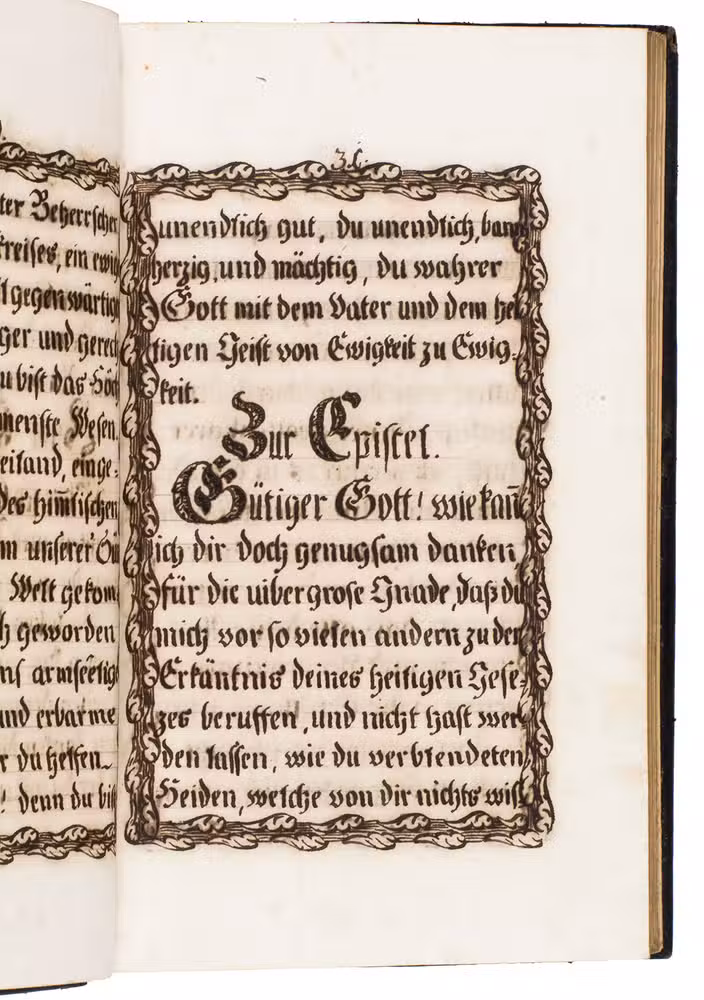 ter Beherrscher
kreises, ein ewig
l gegenwärtig
ger und gerech
u bist das Höch
menste Wesen.
eiland, einge-
des him̅lischen
m unserer
Welt gekom
h geworden
ns armseelig
und erbarme
r du helfen
! denn du bist
unendlich gut, du unendlich, barm
herzig, und mächtig, du wahrer
Gott mit dem Vater und dem hei
ligen Geist von Ewigkeit zu Ewig-
keit.
Zur Epistel.
Gütiger Gott! wie kan̅
ich dir doch genugsam danken
für die uibergrose Gnade, daß du
mich vor so vielen andern zu der
Erkäntnis deines heiligen Gese-
zes beruffen, und nicht hast wer
den lassen, wie du verblendeten
Heiden, welche von dir nichts wiss